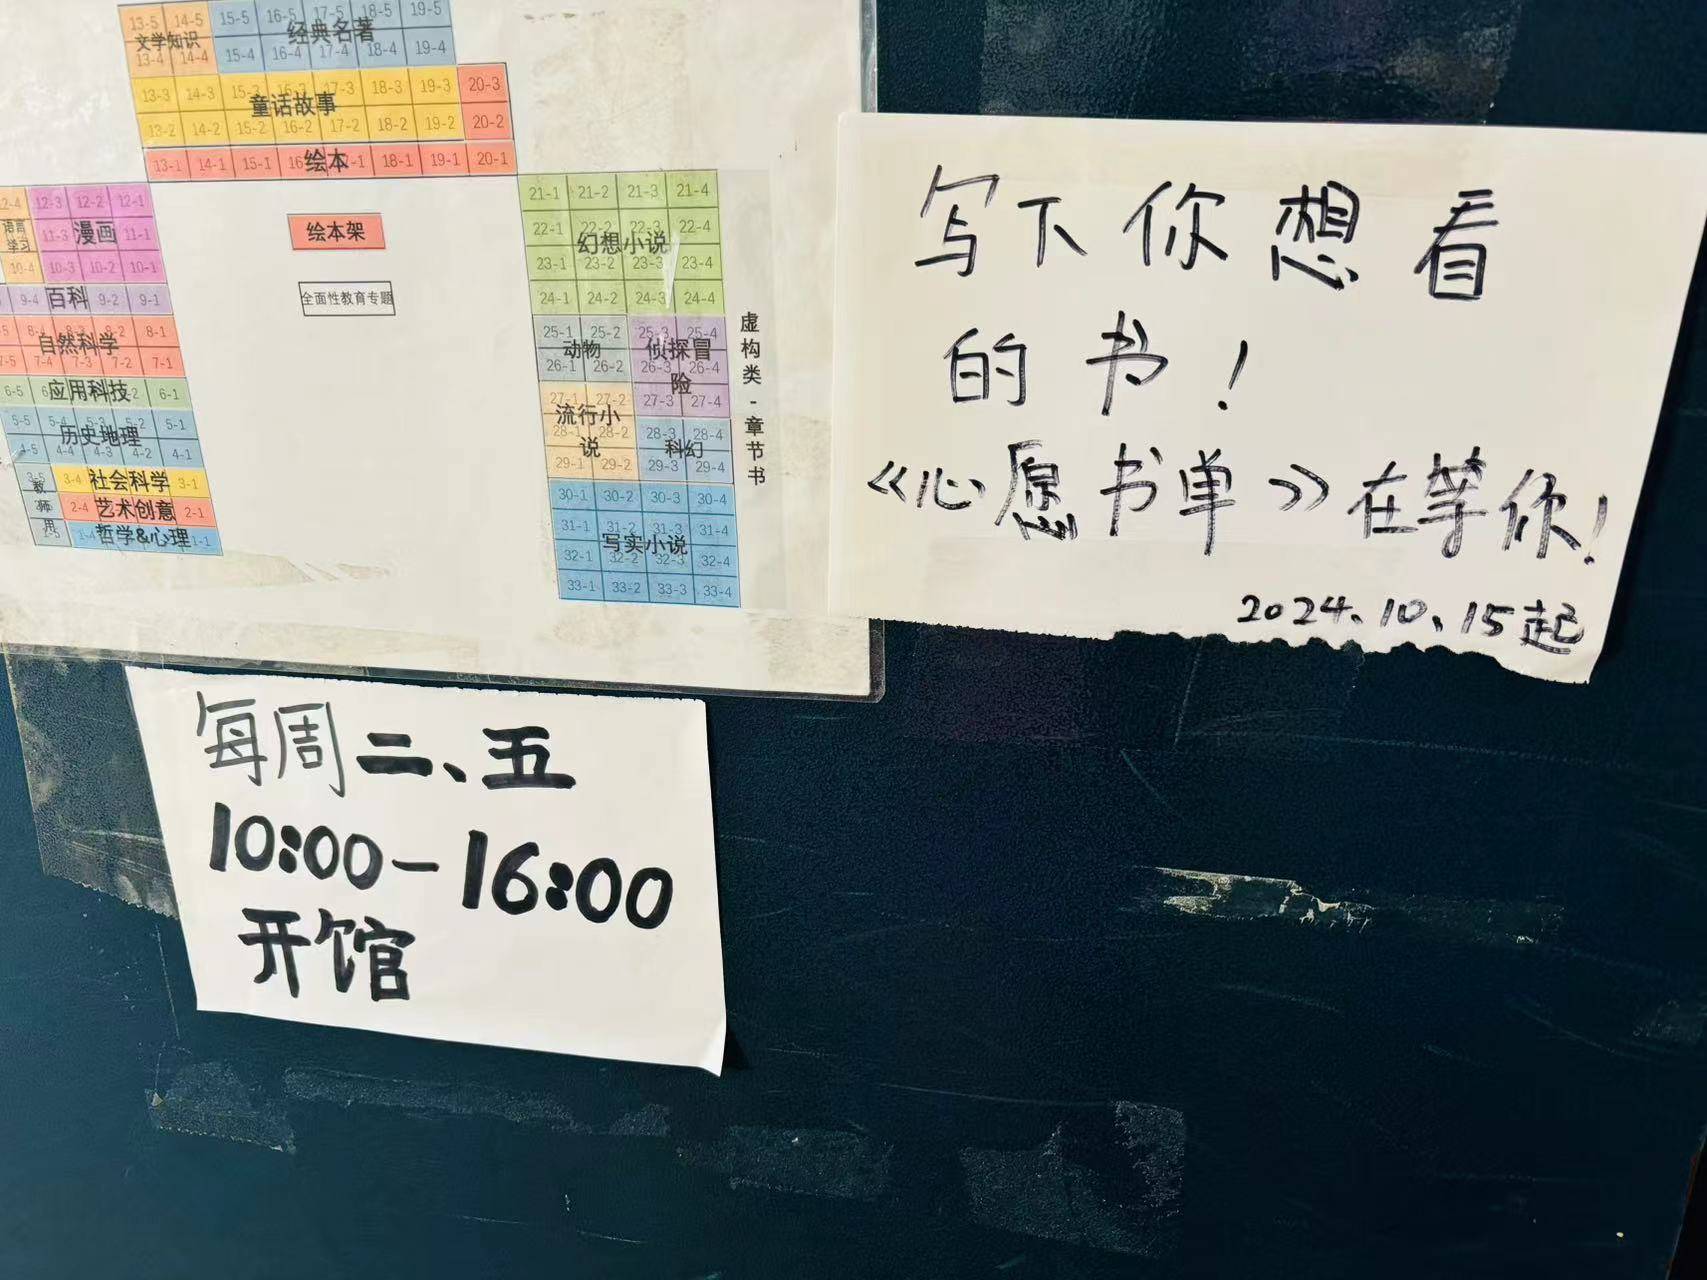 13-5 14-5 15-5 16-5 17-5 18-5 19-5
文学知识 经典名著
13-4 14-4 15-4 16-4 17-4 18-4 19-4
13-3 14-3 15-3 16-3 17-3 18-3 19-3 20-3
童话故事
13-2 14-2 15-2 16-2 17-2 18-2 19-2 20-2
13-1 14-1 15-1 绘本 18-1 19-1 20-1
绘本架
全面性教育专题
12-4 12-3 12-2 12-1
语言学习 11-3 漫画 11-1
10-4 10-3 10-2 10-1
9-4 百科 9-2 9-1
8-2 8-1
自然科学
7-5 7-4 7-3 7-2 7-1
6-5 应用科技 6-1
5-5 5-4 5-3 5-2 5-1
历史地理
4-5 4-4 4-3 4-2 4-1
3-5 3-4 社会科学 3-1
教师用
2-4 艺术创意 2-1
1-5 1-4 哲学&心理 1-1
21-1 21-2 21-3 21-4
22-1 22-2 22-3 22-4
幻想小说
23-1 23-2 23-3 23-4
24-1 24-2 24-3 24-4
25-1 25-2 25-3 25-4
动物 侦探冒险
26-1 26-2 26-3 26-4
27-1 27-2 27-3 27-4
流行小说
28-1 28-2 28-3 28-4
科幻
29-1 29-2 29-3 29-4
30-1 30-2 30-3 30-4
31-1 31-2 31-3 31-4
写实小说
32-1 32-2 32-3 32-4
33-1 33-2 33-3 33-4
虚构类-章节书
写下你想看
的书!
《心愿书单》在等你!
2024.10.15起
每周二、五
10:00-16:00
开馆